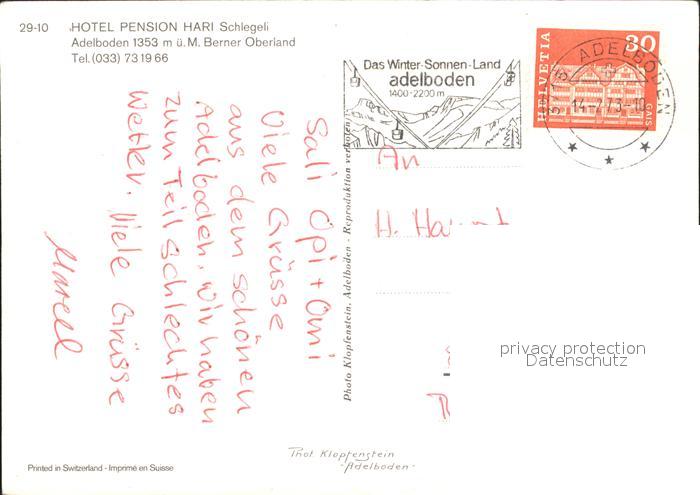 29-10 HOTEL PENSION HARI Schlegeli
Adelboden 1353 m ü. M. Berner Oberland
Tel. (033) 73 19 66
Sali Opi + Omi
Viele Grüsse
aus dem schönen
Adelboden, wir haben
zum Teil schlechtes
Wetter. Viele Grüsse
Marcel
Printed in Switzerland - Imprimé en Suisse
Photo Klopfenstein, Adelboden - Reproduktion verboten
Das Winter-Sonnen-Land
adelboden
1400-2200 m
HELVETIA
30
GAIS
ADELBODEN
An
H.
privacy protection
Datenschutz
Phot. Klopfenstein
-Adelboden-